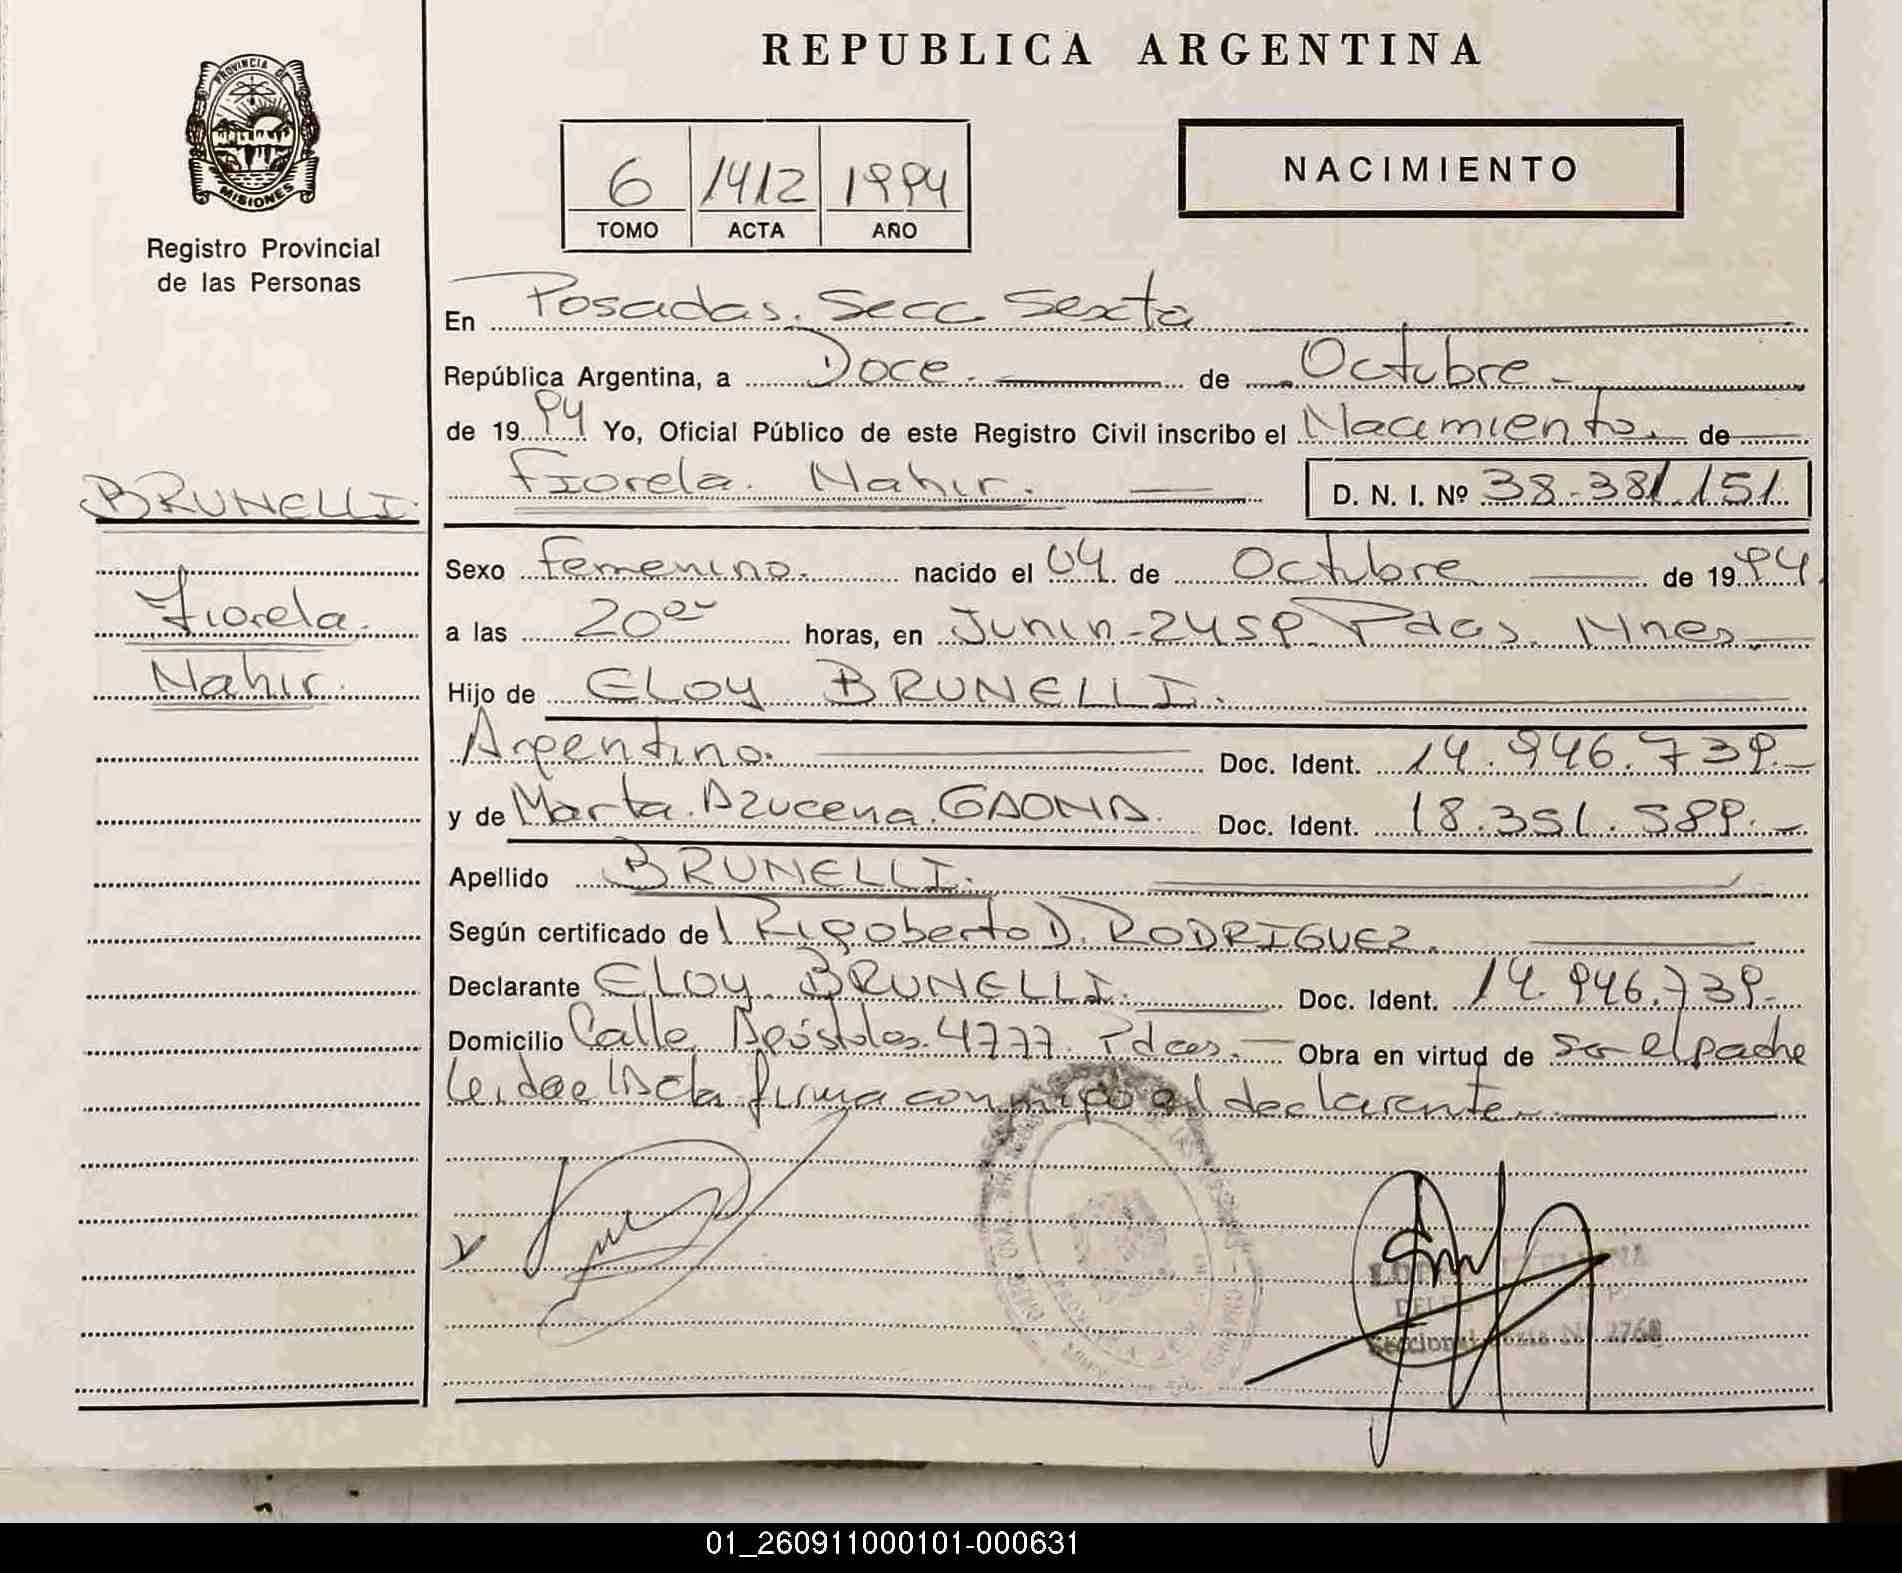 REPUBLICA ARGENTINA
PROVINCIA DE MISIONES
Registro Provincial
de las Personas
6 1412 1994
TOMO ACTA AÑO
NACIMIENTO
En Posadas. Secc. Sexta
República Argentina, a Doce. de Octubre.
de 1994 Yo, Oficial Público de este Registro Civil inscribo el Nacimiento. de
Fiorela. Nahir. D. N. I. Nº 38-381.151
BRUNELLI.
Fiorela.
Nahir.
Sexo Femenino. nacido el 04. de Octubre de 1994.
a las 20 horas, en Junin-2458 Pdas. Mnes
Hijo de ELOY BRUNELLI.
Argentino. Doc. Ident. 14.946.739.
y de Marta. Azucena. GAONA. Doc. Ident. 18.351.589.
Apellido BRUNELLI.
Según certificado de Rigoberto D. RODRIGUEZ.
Declarante ELOY BRUNELLI. Doc. Ident. 14.946.739.
Domicilio Calle Apóstoles. 4777. Pdas. Obra en virtud de ser el padre
Leidae lActa firma conmigo el declarante.
Seccional Nº 2768
01_260911000101-000631